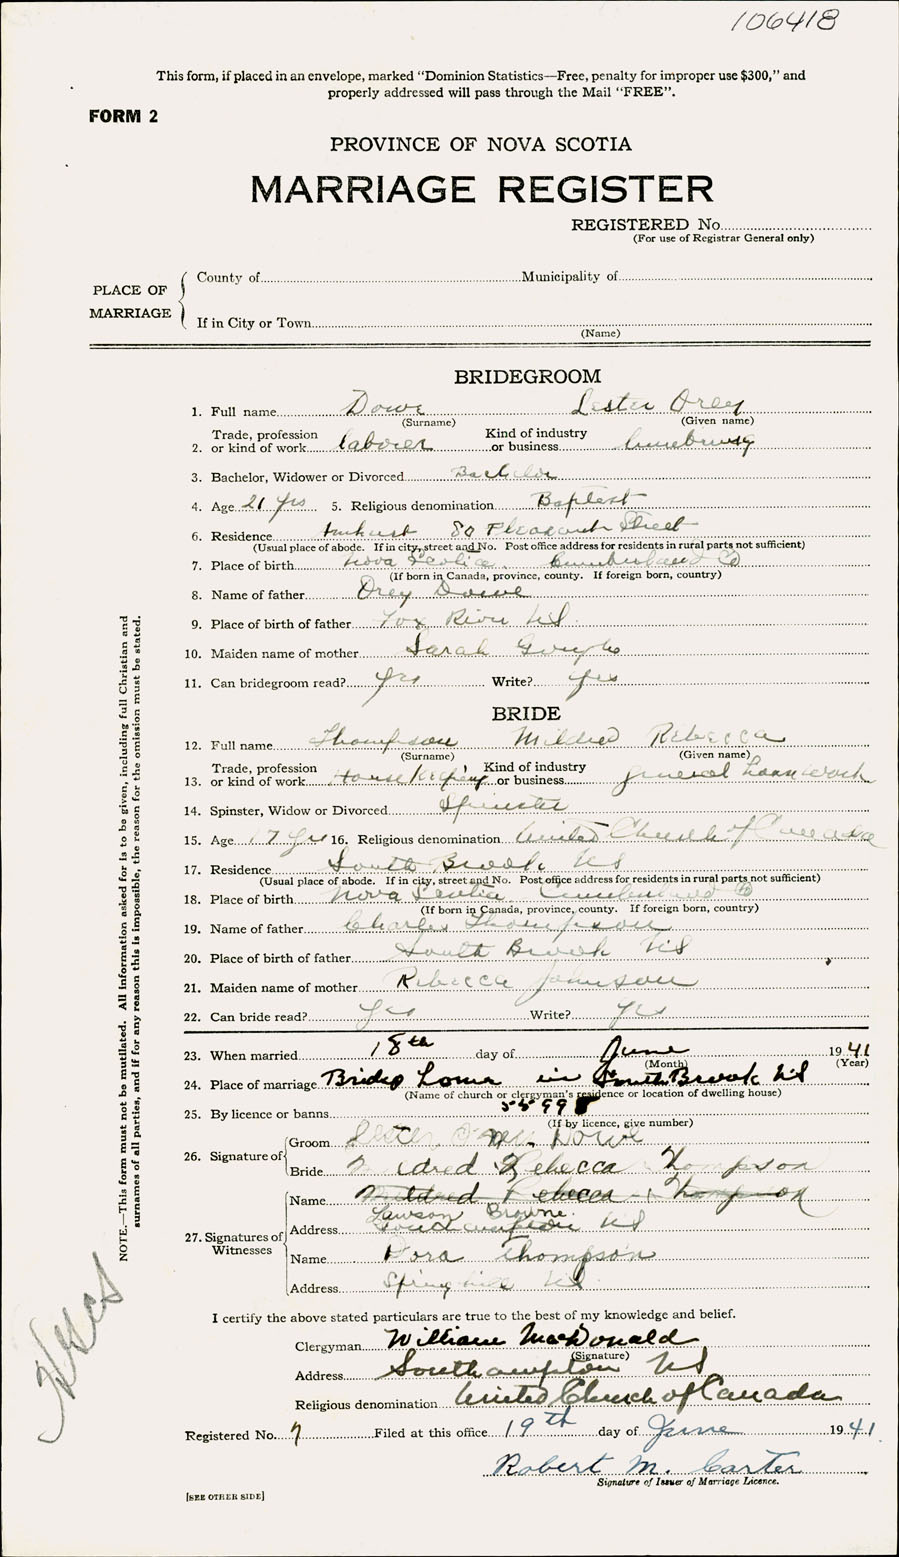 106418
This form, if placed in an envelope, marked "Dominion Statistics—Free, penalty for improper use $300," and
properly addressed will pass through the Mail "FREE".
FORM 2
PROVINCE OF NOVA SCOTIA
MARRIAGE REGISTER
REGISTERED No.
(For use of Registrar General only)
PLACE OF MARRIAGE
County of Municipality of
If in City or Town
(Name)
BRIDEGROOM
1. Full name Dowe Lester Orey
(Surname) (Given name)
2. Trade, profession or kind of work laborer Kind of industry or business
3. Bachelor, Widower or Divorced Bachelor
4. Age 21 yrs 5. Religious denomination Baptist
6. Residence Amherst 80 Pleasant Street
(Usual place of abode. If in city, street and No. Post office address for residents in rural parts not sufficient)
7. Place of birth Nova Scotia Cumberland Co
(If born in Canada, province, county. If foreign born, country)
8. Name of father Orey Dowe
9. Place of birth of father Fox River NS
10. Maiden name of mother Sarah
11. Can bridegroom read? yes Write? yes
BRIDE
12. Full name Thompson Mildred Rebecca
(Surname) (Given name)
13. Trade, profession or kind of work Housekeeping Kind of industry or business general housework
14. Spinster, Widow or Divorced Spinster
15. Age 17 yrs 16. Religious denomination United Church of Canada
17. Residence South Brook NS
(Usual place of abode. If in city, street and No. Post office address for residents in rural parts not sufficient)
18. Place of birth Nova Scotia Cumberland Co
(If born in Canada, province, county. If foreign born, country)
19. Name of father Charles Thompson
20. Place of birth of father South Brook NS
21. Maiden name of mother Rebecca Johnson
22. Can bride read? yes Write? yes
23. When married 18th day of June 1941
(Month) (Year)
24. Place of marriage Brides home in South Brook NS
(Name of church or clergyman's residence or location of dwelling house)
25. By licence or banns 55998
(If by licence, give number)
26. Signature of Groom Lester Dowe
Bride Mildred Rebecca Thompson
27. Signatures of Witnesses
Name Mildred Rebecca Thompson
Lawson Browne
Address Southampton NS
Name Dora Thompson
Address Springhill NS
I certify the above stated particulars are true to the best of my knowledge and belief.
Clergyman William MacDonald
(Signature)
Address Southampton NS
Religious denomination United Church of Canada
Registered No. 7 Filed at this office 19th day of June 1941
Robert M. Carter
Signature of Issuer of Marriage Licence.
[SEE OTHER SIDE]
NOTE.—This form must not be mutilated. All information asked for is to be given, including full Christian and
surnames of all parties, and if for any reason this is impossible, the reason for the omission must be stated.